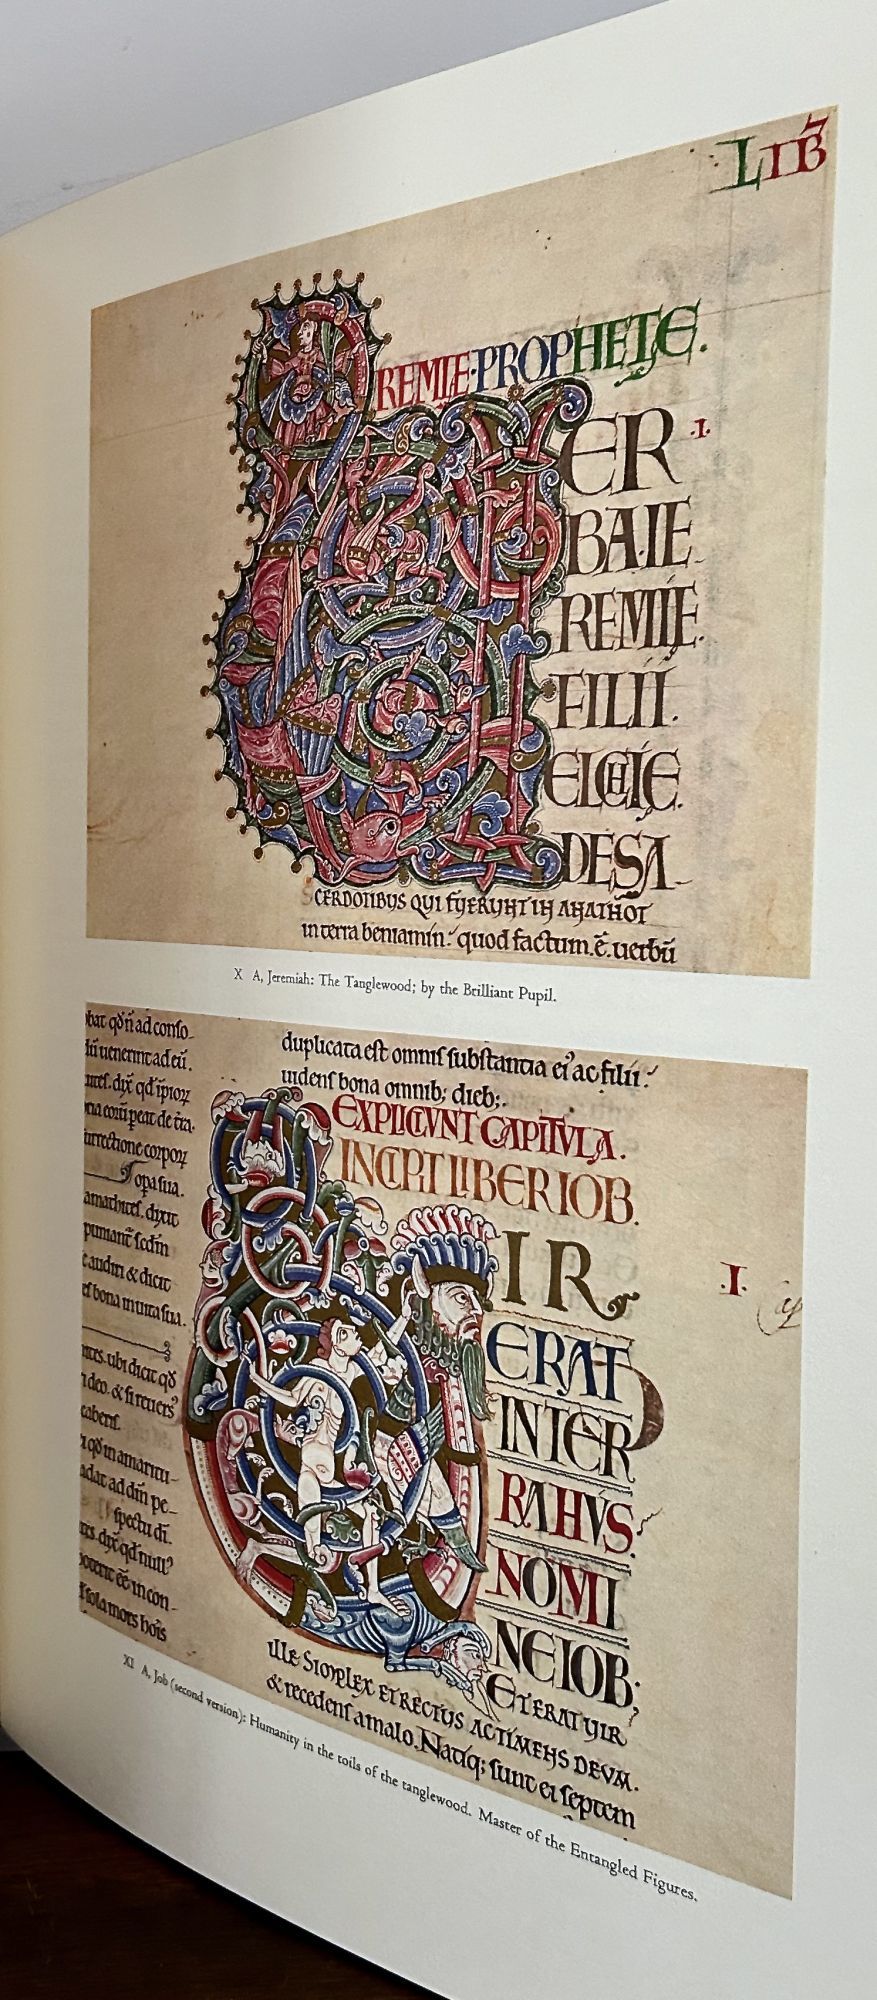 LIB
REMIE·PROPHETE.
ER
·I·
BA·IE
REMIE.
FILII.
ELCHIE.
DESA
CERDOTIBUS QUI FUERUNT IN ANATHOT
in terra beniamin: quod factum. ē. uerbū
X A, Jeremiah: The Tanglewood; by the Brilliant Pupil.
bat qđ n̄ ad conso-
uenerint ad eū.
dix̄ qđ ipioꝝ
peat de t̄ra.
urrectione corpoꝝ
opa sua.
dixit
audiri & dicit
bona in uita sua.
ubi dicit qđ
ideo. & si reuers'
caberit.
qđ in amaritu-
ad dīn pe-
spectu dī.
dix̄ qđ null'
ēē in con-
sola mors hōis
duplicata est omnis substantia ei' ac filii:
uidens bona omnib; dieb;.
EXPLICIUNT CAPITULA.
INCIPIT LIBER IOB.
IR
·I·
ERAT
INTER
RA HUS
NOMI
NE IOB;
ET ERAT UIR
ille SIMPLEX ET RECTUS AC TIMENS DEUM.
& recedens a malo. Natiq; sunt ei septem
XI A, Job (second version): Humanity in the toils of the tanglewood. Master of the Entangled Figures.